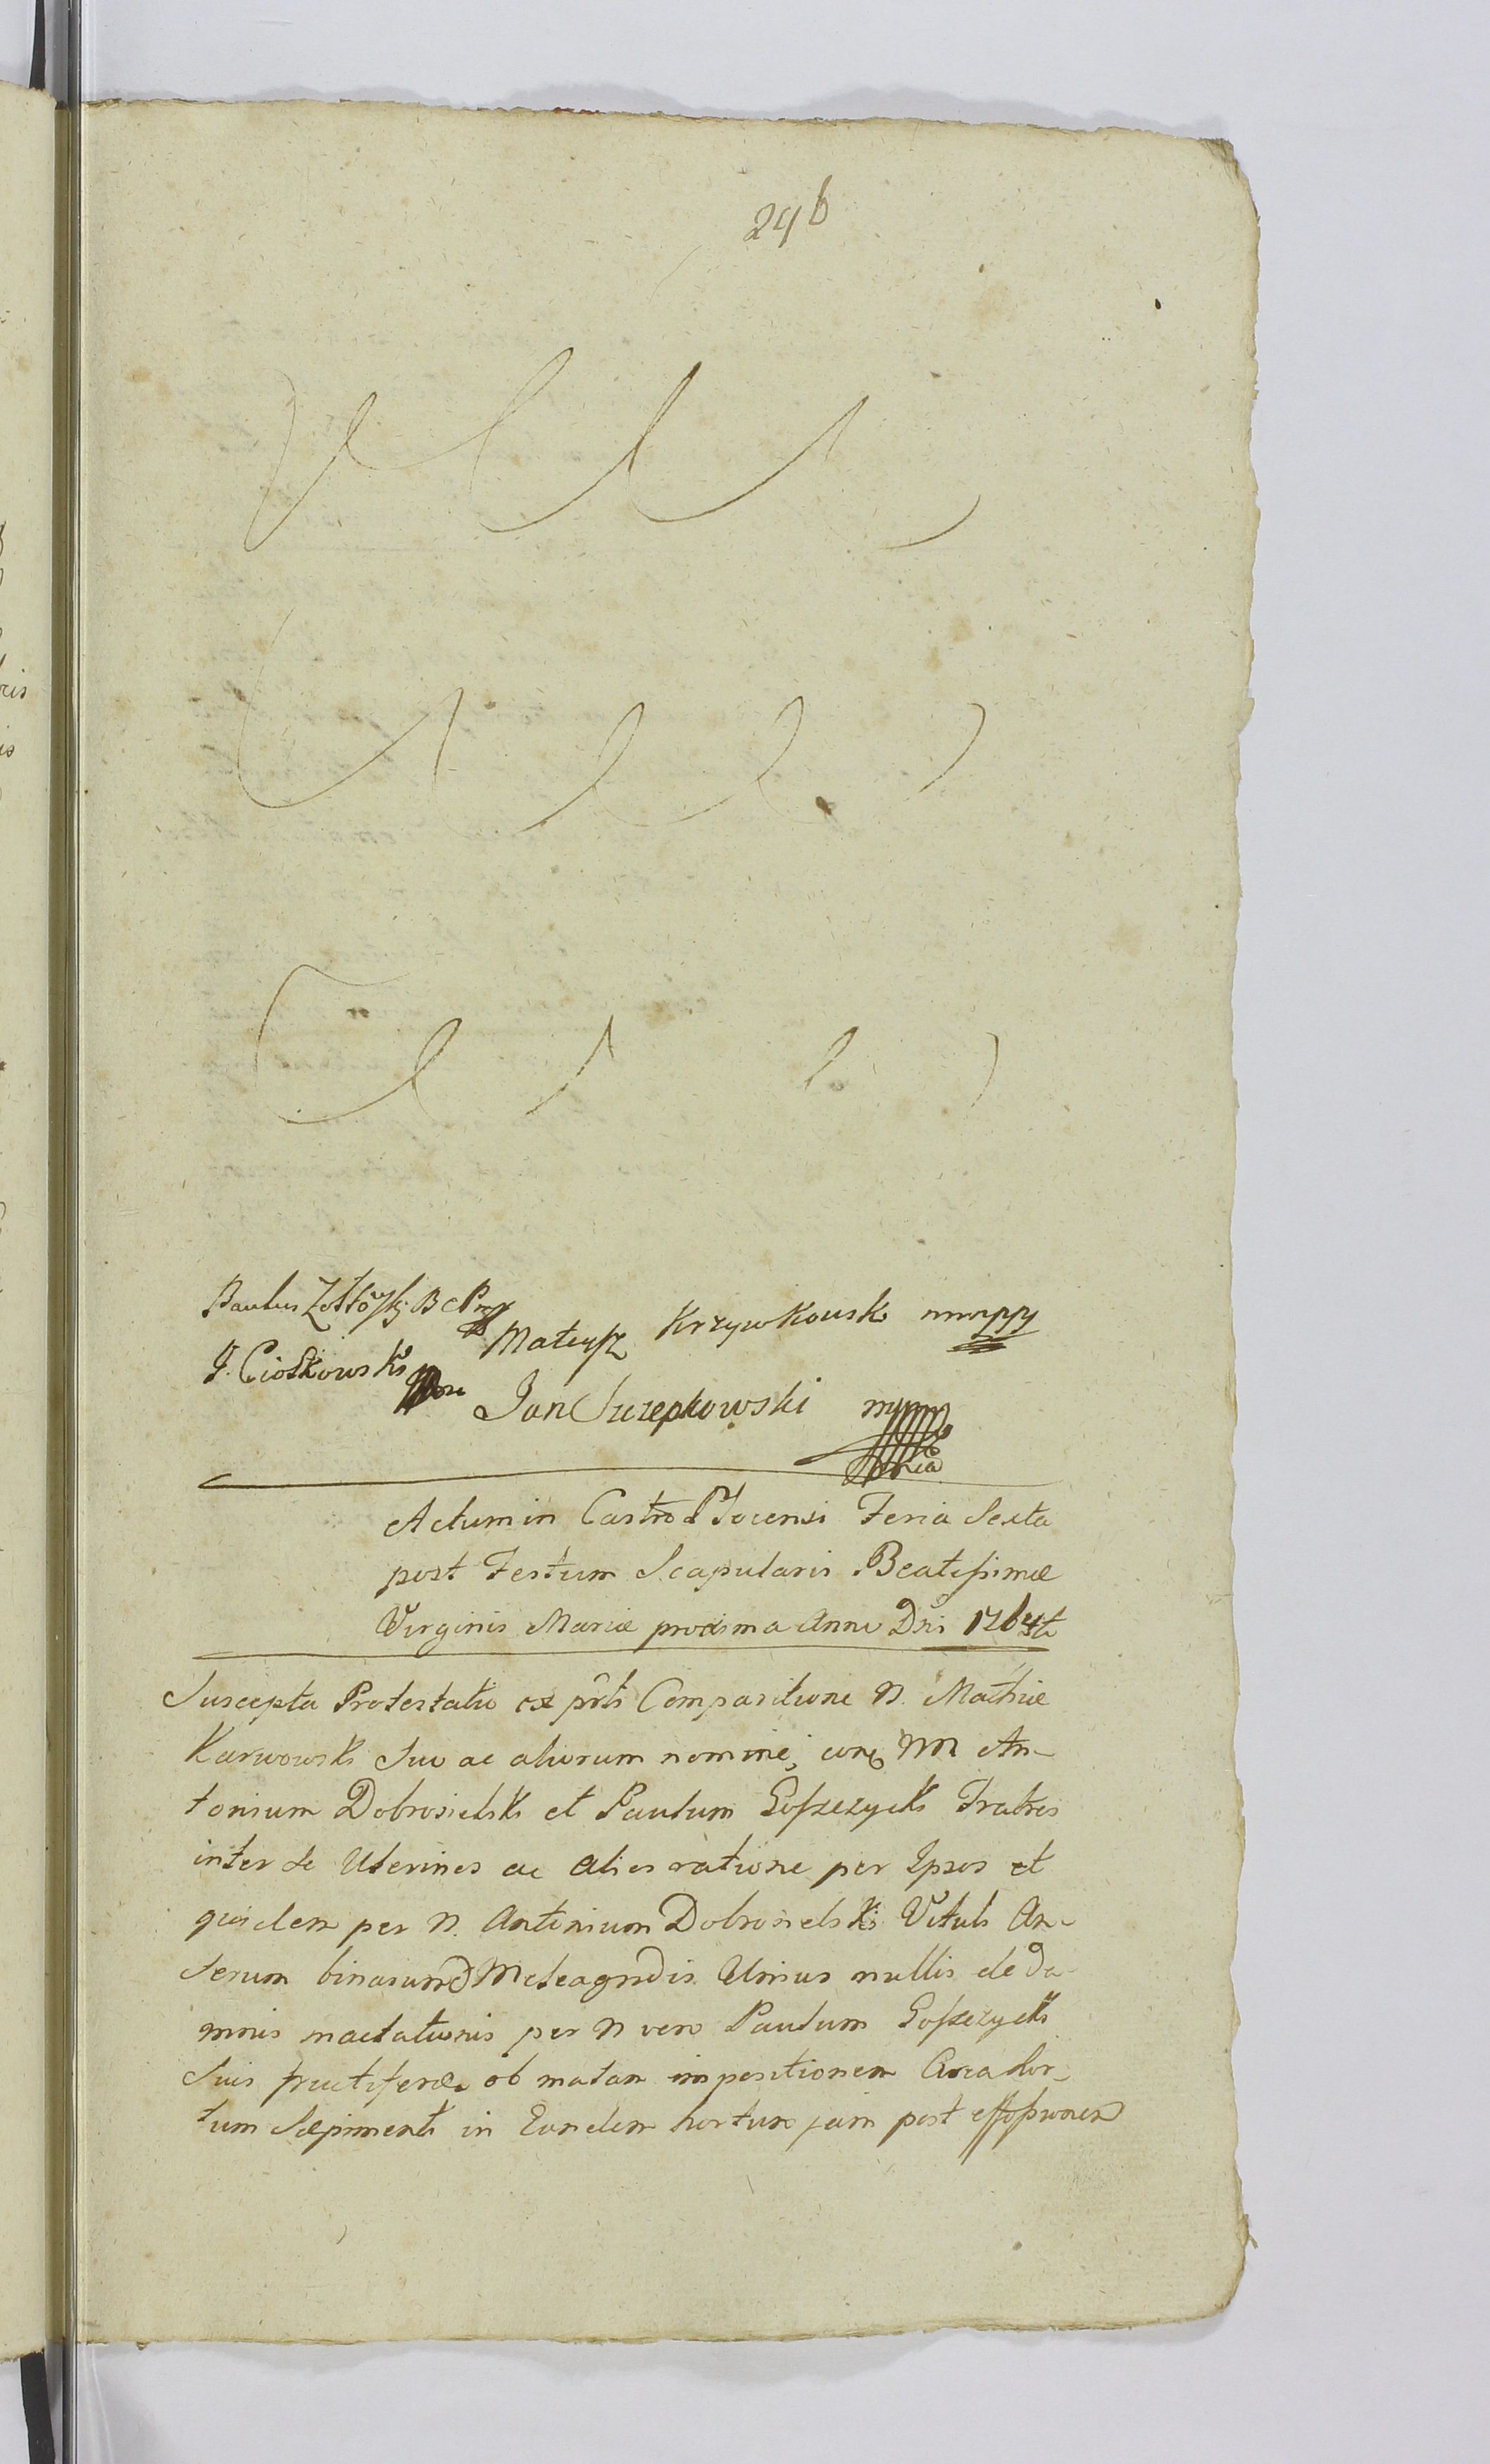 29b
Paulus Zołtowski B C P mp
Mateusz Krzywkowski mppp
J. Ciołkowski
Jan Szczepkowski mppria
Actum in Castro Plocensi Feria Sexta
post Festum Scapularis Beatissimæ
Virginis Mariæ proxima Anno Dni 1764to
Suscepta Protestatio ex prti Comparitione N. Mathiæ
Karwowski suo ac aliorum nomine, con NN An-
tonium Dobrosielski et Paulum Gosczycki Fratres
inter se Uterinos ac alios ratione per Ipsos et
quidem per N. Antonium Dobrosielski Vituli An-
serum binarum Meleagridis Unius nullis de da-
mnis mactationis per N vero Paulum Gosczycki
Suis fructiferæ ob malam impositionem Circa hor-
tum Sæpimenti in Eundem hortum jam post effossionem